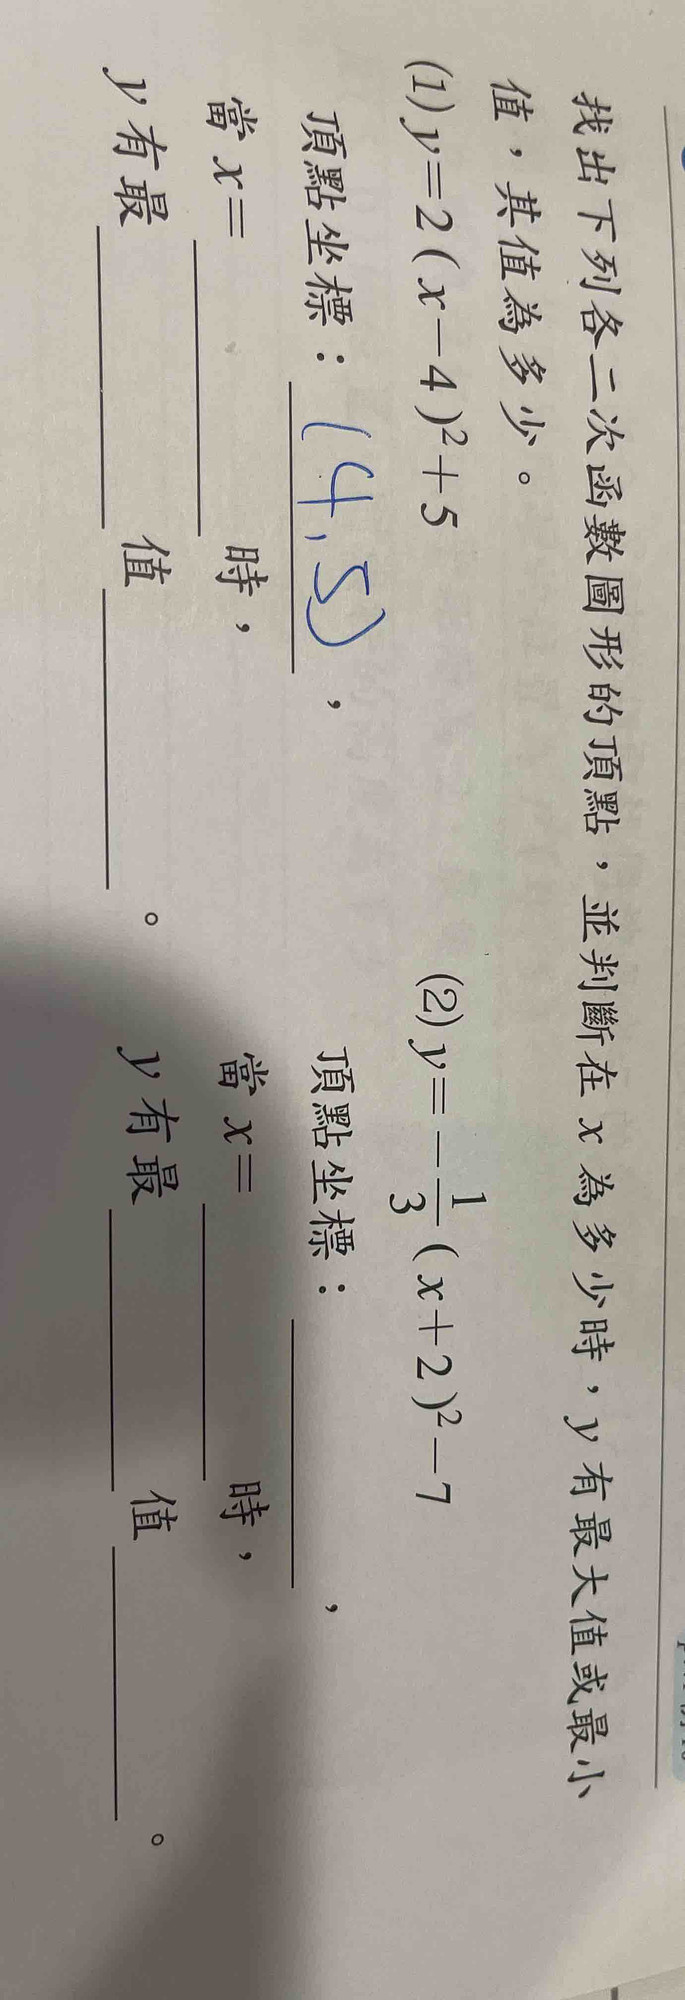 找出下列各二次函數圖形的頂點，並判斷在 x 為多少時，y 有最大值或最小
值，其值為多少。
(1) y=2(x-4)²+5
頂點坐標：(4,5)，
當 x=＿＿＿時，
y 有最＿＿＿值＿＿＿。
(2) y=-1/3(x+2)²-7
頂點坐標：＿＿＿，
當 x=＿＿＿時，
y 有最＿＿＿值＿＿＿。